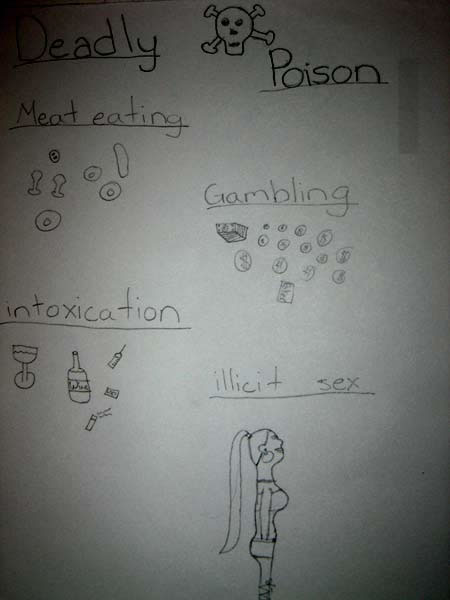 Deadly
Poison
Meat eating
Gambling
intoxication
Wine
illicit sex